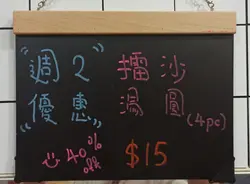 “週2
優惠”
40% off
擂沙
湯圓(4pc)
$15